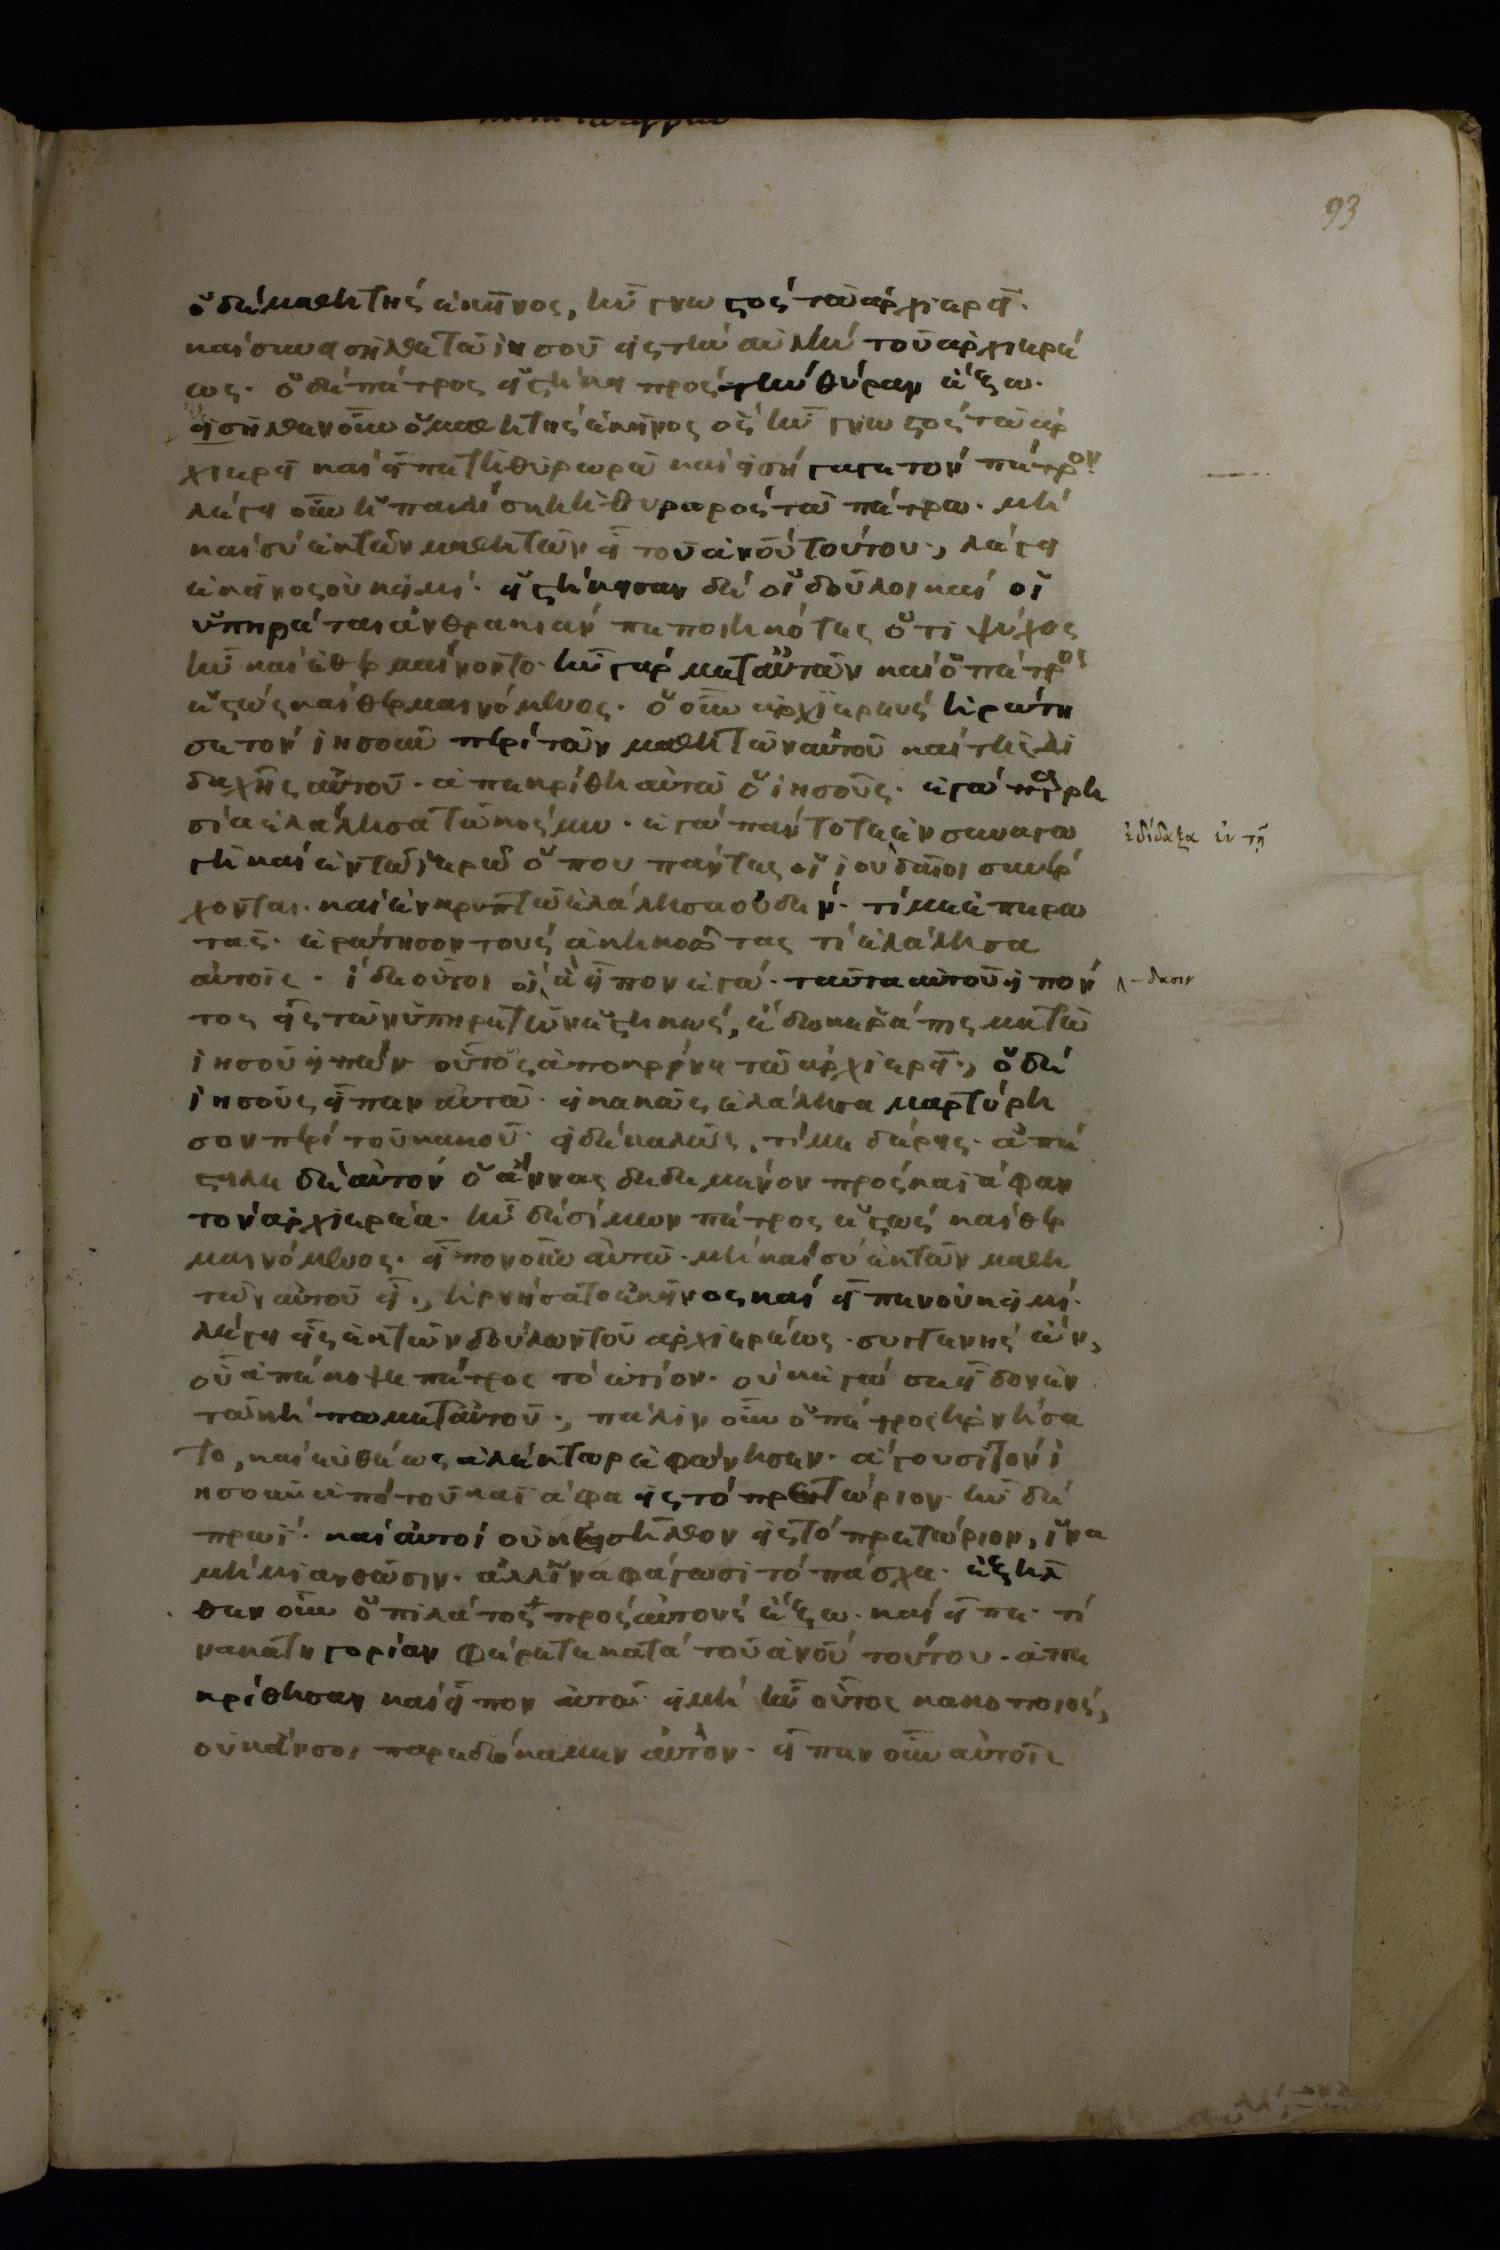 93
ὁ δὲ μαθητὴς ἐκεῖνος, ἦν γνωστὸς τῶ ἀρχιερεῖ·
καὶ συνεισῆλθε τῶ ἰησοῦ εἰς τὴν αὐλὴν τοῦ ἀρχιερέ
ως· ὁ δὲ πέτρος εἱστήκει πρὸς τὴν θύραν ἔξω·
εἰσῆλθεν οὖν ὁ μαθητὴς ἐκεῖνος ὃς ἦν γνωστὸς τῶ ἀρ
χιερεῖ καὶ εἶπε τῆ θυρωρῶ καὶ εἰσήγαγε τὸν πέτρον·
λέγει οὖν ἡ παιδίσκη ἡ θυρωρὸς τῶ πέτρω· μὴ
καὶ σὺ ἐκ τῶν μαθητῶν εἶ τοῦ ἀνου τούτου·, λέγει
ἐκεῖνος οὐκ εἰμί· εἱστήκεισαν δὲ οἱ δοῦλοι καὶ οἱ
ὑπηρέται ἀνθρακιὰν πεποιηκότες ὅτι ψύχος
ἦν καὶ ἐθερμαίνοντο· ἦν γὰρ μετ αὐτῶν καὶ ὁ πέτρος
ἑστὼς καὶ θερμαινόμενος· ὁ οὖν ἀρχιερεὺς ἠρώτη
σε τὸν ἰησοῦν περὶ τῶν μαθητῶν αὐτοῦ καὶ τῆς δι
δαχῆς αὐτοῦ· ἀπεκρίθη αὐτῶ ὁ ἰησοῦς· ἐγὼ παρρη
σία ἐλάλησα τῶ κόσμω· ἐγὼ πάντοτε ἐν συναγω
γῆ καὶ ἐν τῶ ἱερῶ ὅπου πάντες οἱ ἰουδαῖοι συνέρ
ἐδίδαξα ἐν τῆ
χονται· καὶ ἐν κρυπτῶ ἐλάλησα οὐδέν· τί με ἐπερω
τᾶς· ἐρώτησον τοὺς ἀκηκοότας τί ἐλάλησα
αὐτοῖς· ἴδε οὗτοι οἱ ἃ εἶπον ἐγώ· ταῦτα αὐτοῦ εἰπόν
τος εἷς τῶν ὑπηρετῶν ἑστηκὼς, ἔδωκε ῥάπις με τῶ
ἰησοῦ εἰπὼν οὕτως ἀποκρίνη τῶ ἀρχιερεῖ·, ὁ δὲ
ἰησοῦς εἶπεν αὐτῶ· εἰ κακῶς ἐλάλησα μαρτύρη
σον περὶ τοῦ κακοῦ· εἰ δὲ καλῶς, τί με δέρεις· ἀπέ
στειλε δὲ αὐτὸν ὁ ἄννας δεδεμένον πρὸς καιάφαν
τὸν ἀρχιερέα· ἦν δὲ σίμων πέτρος ἑστὼς καὶ θερ
μαινόμενος· εἶπον οὖν αὐτῶ· μὴ καὶ σὺ ἐκ τῶν μαθη
τῶν αὐτοῦ εἶ·, ἠρνήσατο ἐκεῖνος καὶ εἶπεν οὐκ εἰμί·
λέγει εἷς ἐκ τῶν δούλων τοῦ ἀρχιερέως· συγγενὴς ὢν,
οὗ ἀπέκοψε πέτρος τὸ ὠτίον· οὐκ ἐγώ σε εἶδον ἐν
τῶ κήπω μετ αὐτοῦ·, πάλιν οὖν ὁ πέτρος ἠρνήσα
το, καὶ εὐθέως ἀλέκτωρ ἐφώνησεν· ἄγουσι τὸν ἰ
ησοῦν ἀπὸ τοῦ καϊάφα εἰς τὸ πραιτώριον· ἦν δὲ
πρωΐ· καὶ αὐτοὶ οὐκ εἰσῆλθον εἰς τὸ πραιτώριον, ἵνα
μὴ μιανθῶσιν· ἀλλ ἵνα φάγωσι τὸ πάσχα· ἐξῆλ
θεν οὖν ὁ πιλάτος πρὸς αὐτοὺς ἔξω· καὶ εἶπε· τί
να κατηγορίαν φέρετε κατὰ τοῦ ἀνου τούτου· ἀπε
κρίθησαν καὶ εἶπον αὐτῶ· εἰ μὴ ἦν οὗτος κακοποιὸς,
οὐκ ἄν σοι παρεδώκαμεν αὐτόν· εἶπεν οὖν αὐτοῖς